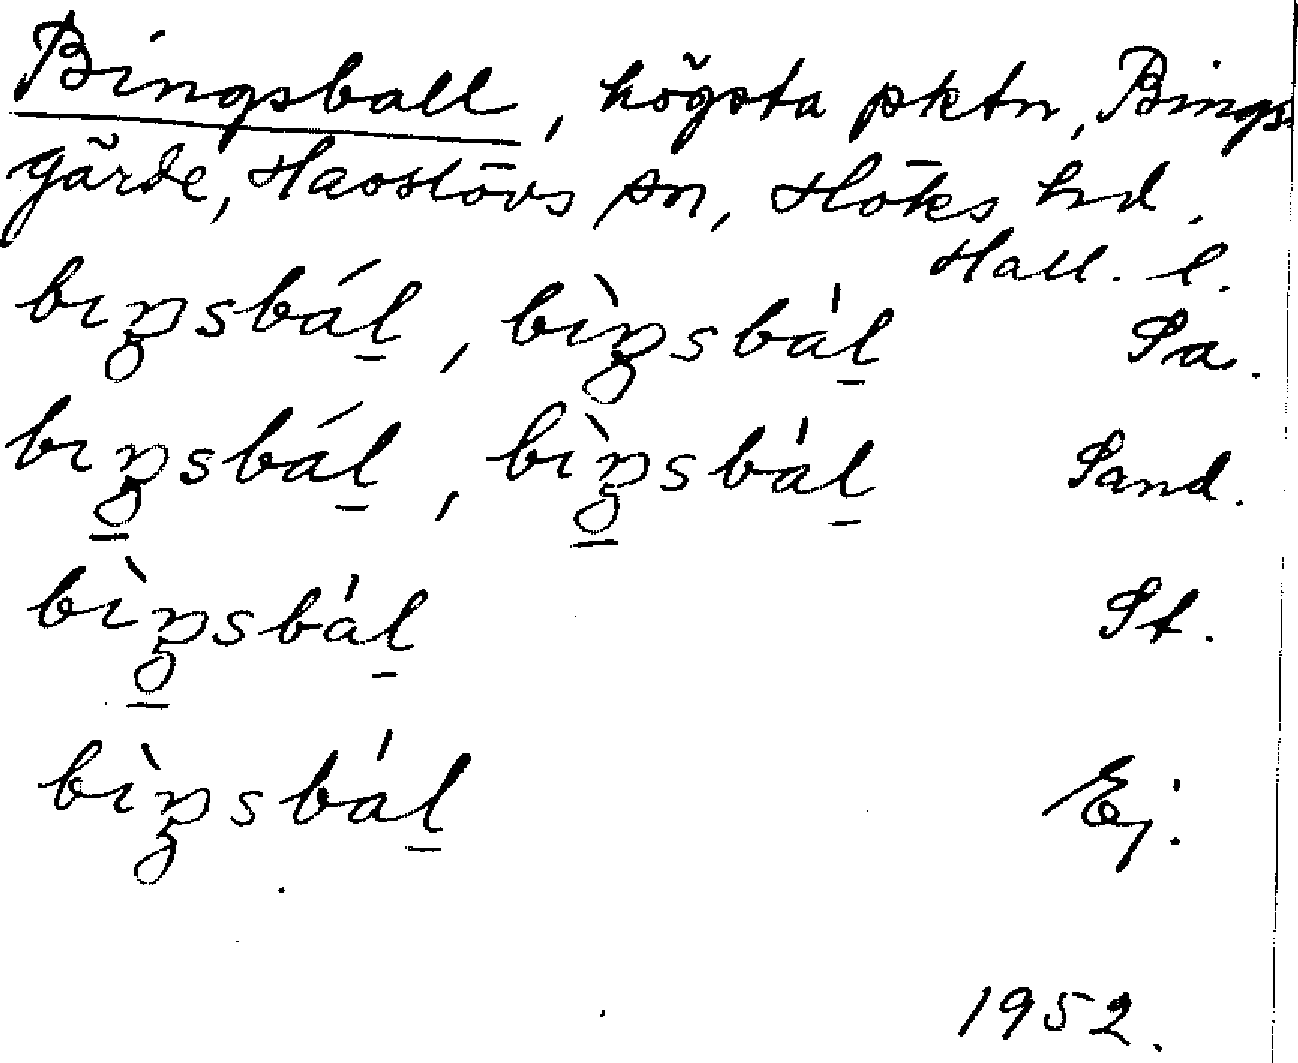 Bingsball, högsta pktn, Bings-
gärde, Hasslövs sn, Höks hd.
Hall. l.
bıŋsbáḻ, bìŋsbáḻ Sa.
bıŋ̱sbáḻ, bìŋ̱sbáḻ Sand.
bìŋ̱sbáḻ St.
bìŋsbáḻ Ej.
1952.